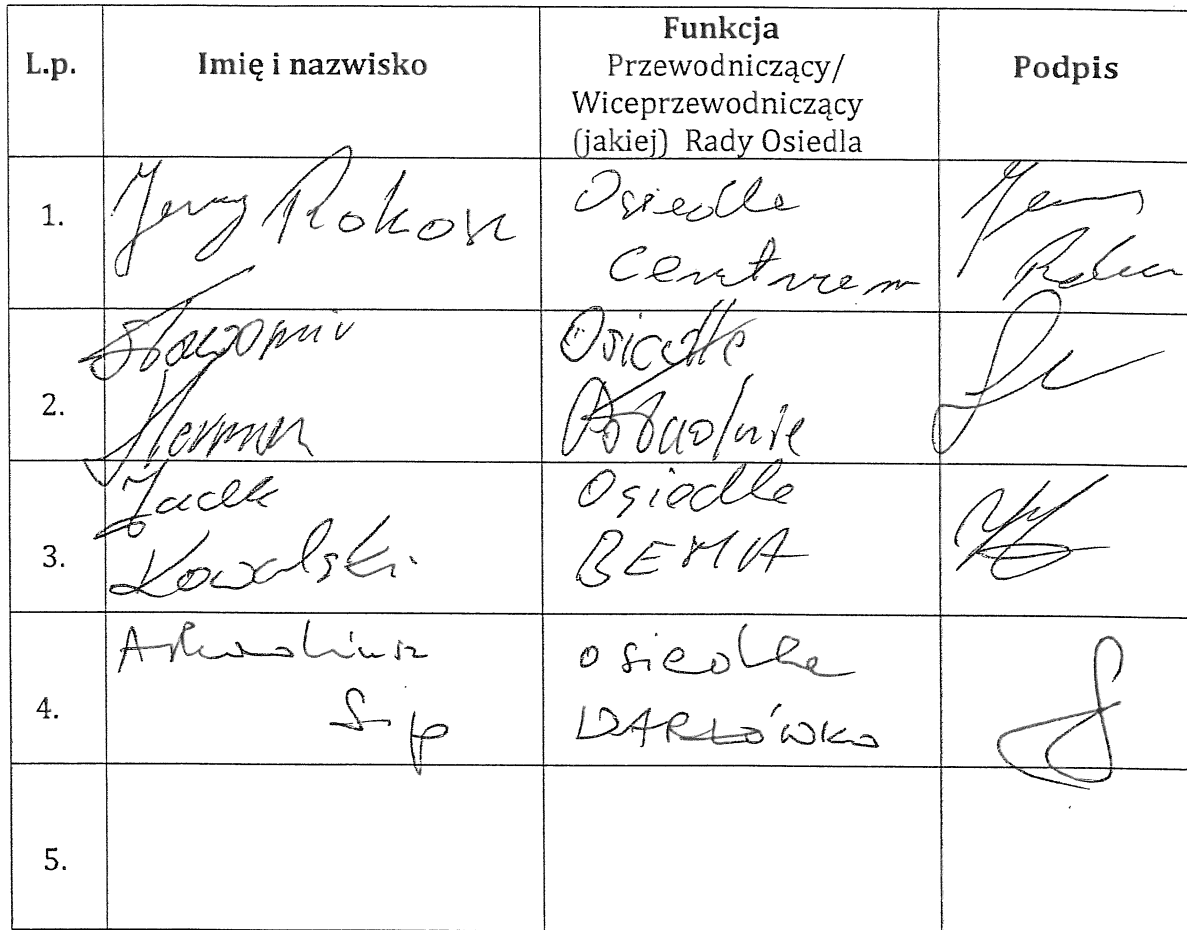 L.p.
Imię i nazwisko
Funkcja
Przewodniczący/
Wiceprzewodniczący
(jakiej) Rady Osiedla
Podpis
1.
Jerzy Rokosz
Osiedle
Centrum
Jerzy
2.
Sławomir
Osiedle
3.
Jacek
Kowalski
Osiedle
BEMA
4.
Arkadiusz
Sip
osiedle
DARŁÓWKO
5.